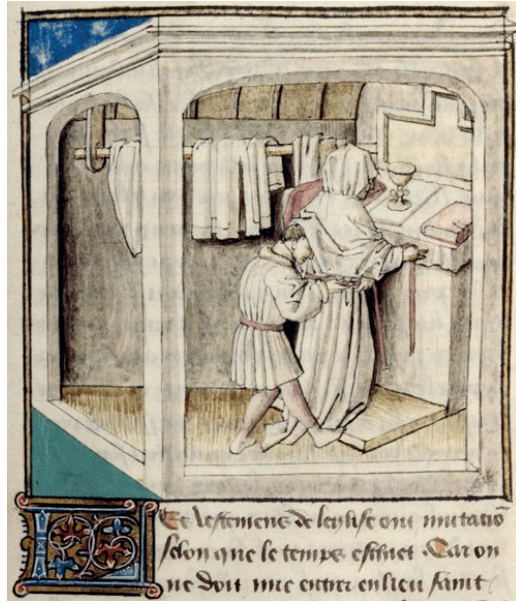 LEs vestemens de leglise ont mutatiõ
selon que le temps eschiet . Car on
ne doit mie entrer en lieu saint